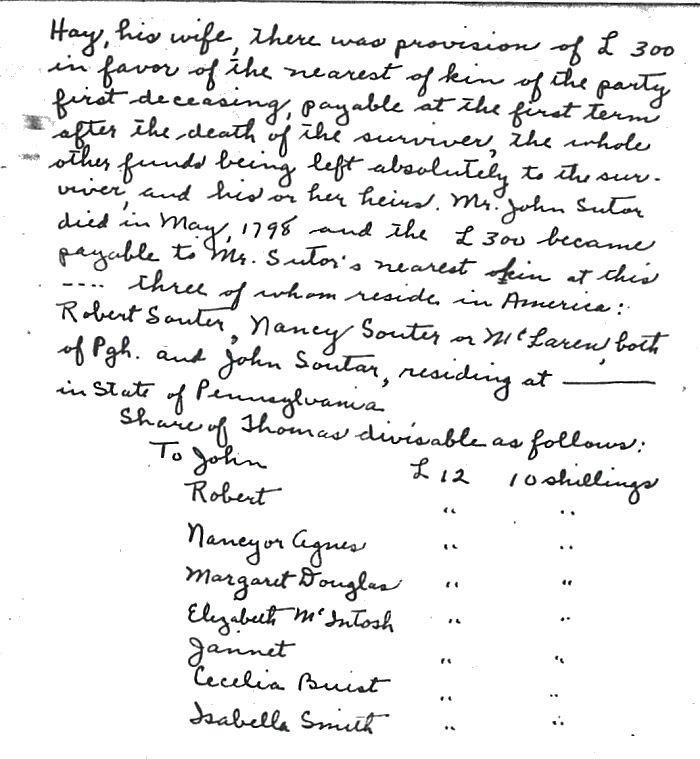 Hay, his wife, there was provision of £ 300
in favor of the nearest of kin of the party
first deceasing, payable at the first term
after the death of the surviver, the whole
other funds being left absolutely to the sur-
viver, and his or her heirs. Mr. John Sutor
died in May, 1798 and the £300 became
payable to Mr. Sutor's nearest kin at this
---- three of whom reside in America:
Robert Souter, Nancy Souter or McLaren, both
of Pgh. and John Soutar, residing at ———
in State of Pennsylvania
Share of Thomas divisable as follows:
To John £ 12 10 shillings
Robert " "
Nancy or Agnes " "
Margaret Douglas " "
Elizabeth McIntosh " "
Jannet " "
Cecelia Buist " "
Isabella Smith " "